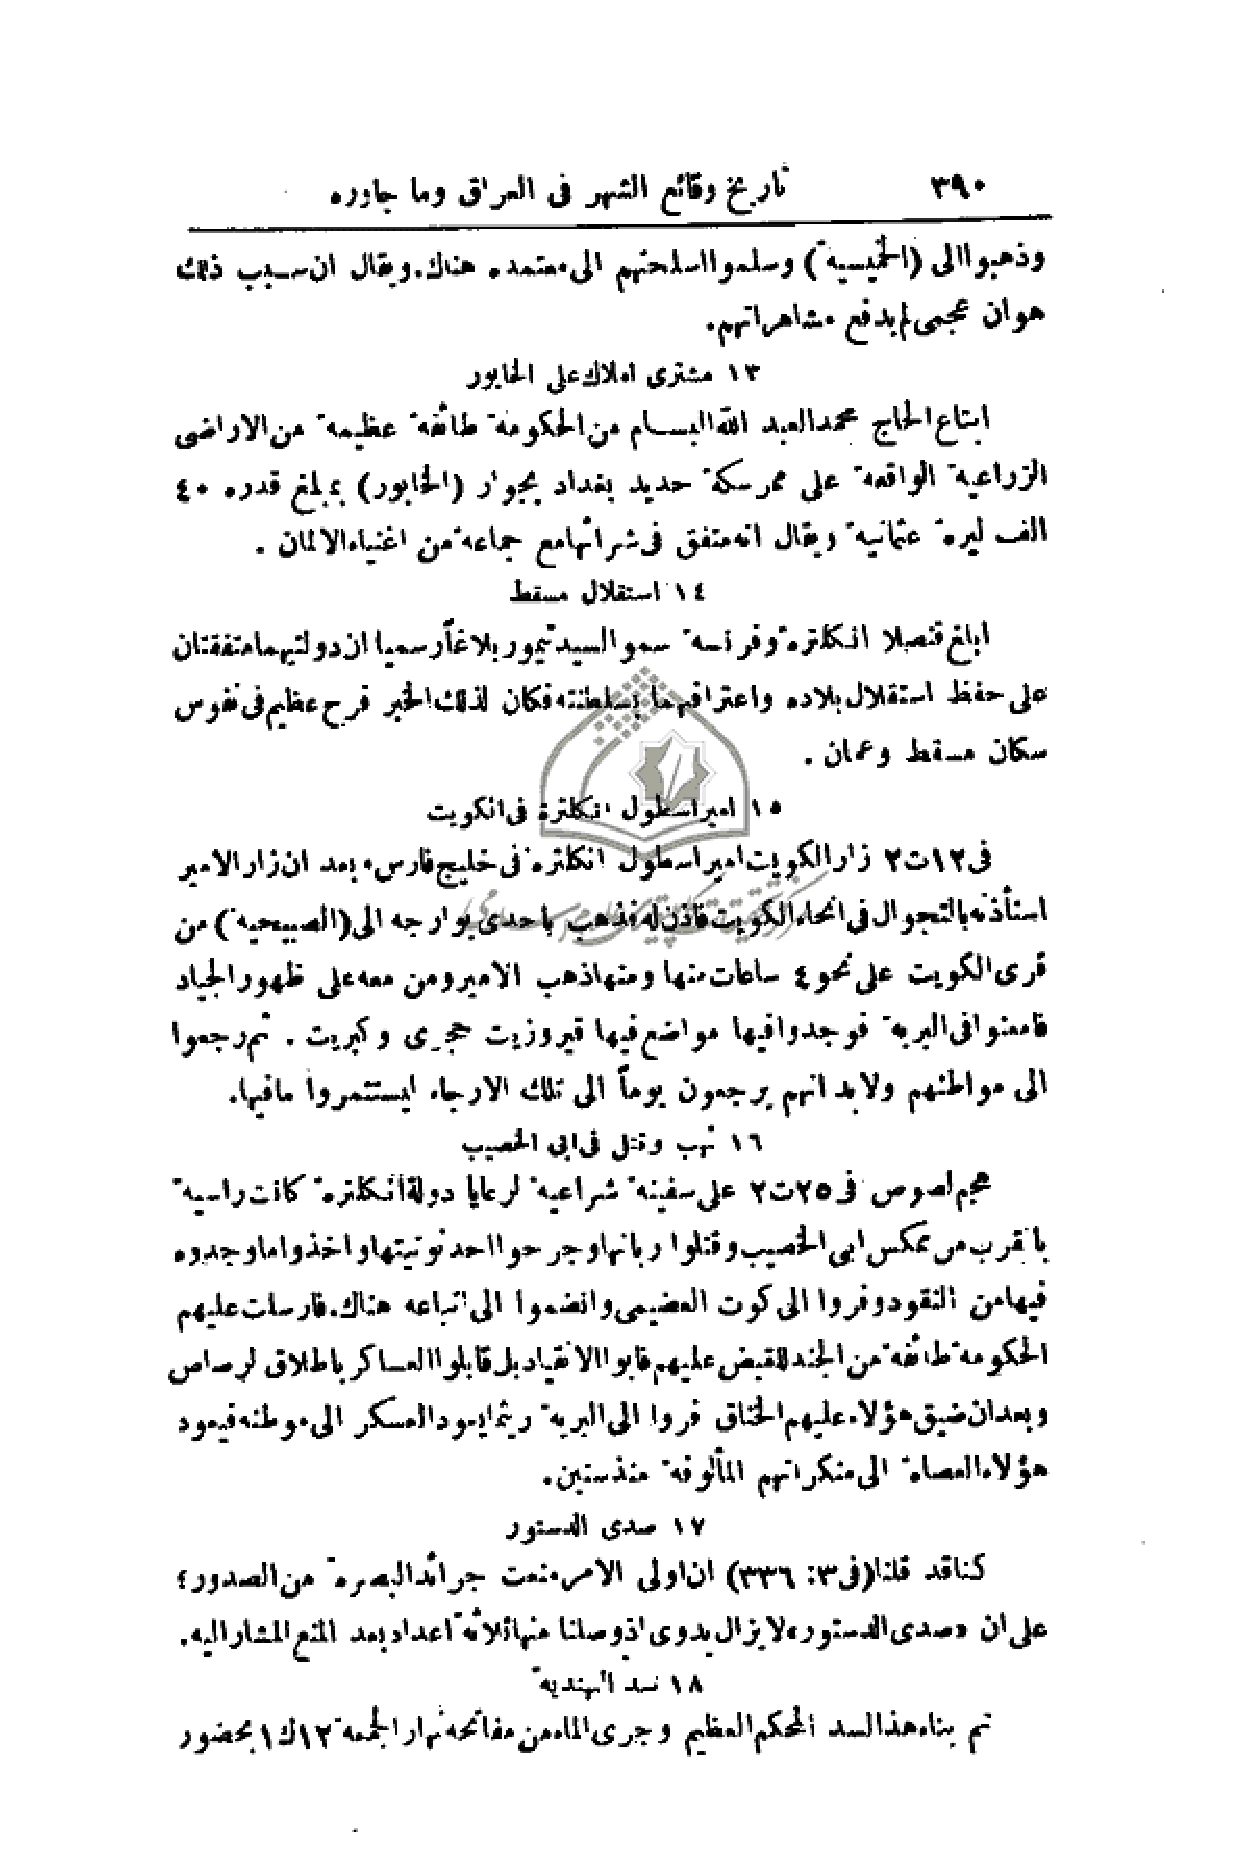 ٣٩٠ تاريخ وقائع الشهر فى العراق وما جاوره
وذهبوا الى (الخميسية) وسلموا اسلحتهم الى معتمده هناك. ويقال ان سبب ذلك
هو ان عجمى لم يدفع مشاهراتهم.
١٣ مشترى املاك على الخابور
ابتاع الحاج محمد العبد الله البسام من الحكومة طائفة عظيمة من الاراضى
الزراعية الواقعة على ممر سكة حديد بغداد بجوار (الخابور) بمبلغ قدره ٤٠
الف ليرة عثمانية ويقال انه متفق فى شرائها مع جماعة من اغنياء الالمان .
١٤ استقلال مسقط
ابلغ قنصلا انكلترة وفرنسة سمو السيد تيمور بلاغاً رسميا ان دولتيهما متفقتان
على حفظ استقلال بلاده واعترافهما بسلطنته فكان لذلك الخبر فرح عظيم فى نفوس
سكان مسقط وعمان .
١٥ امير اسطول انكلترة فى الكويت
فى ١٢ ت٢ زار الكويت امير اسطول انكلترة فى خليج فارس، بعد ان زار الامير
استأذنه بالتجوال فى انحاء الكويت فاذن له فذهب باحدى بوارجه الى (الصبيحية) من
قرى الكويت على نحو ٤ ساعات منها ومنها ذهب الامير ومن معه على ظهور الجياد
فامعنوا فى البرية فوجدوا فيها مواضع فيها قير وزيت حجرى وكبريت . ثم رجعوا
الى مواطنهم ولا بد انهم يرجعون يوماً الى تلك الارجاء ليستثمروا ما فيها.
١٦ نهب وقتل فى ابى الخصيب
هجم لصوص فى ٢٥ ت٢ على سفينة شراعية لرعايا دولة انكلترة كانت راسية
بالقرب من مكس ابى الخصيب وقتلوا ربانها وجرحوا احد نوتيتها واخذوا ما وجدوه
فيها من النقود وفروا الى كوت العضيمى وانضموا الى اتباعه هناك. فارسلت عليهم
الحكومة طائفة من الجند للقبض عليهم فابوا الانقياد بل قابلوا العساكر باطلاق لرصاص
وبعد ان ضيق هؤلاء عليهم الخناق فروا الى البرية ريثما يعود العسكر الى موطنه فيعود
هؤلاء العصاة الى منكراتهم المألوفة منذ سنين.
١٧ صدى الدستور
كنا قد قلنا (فى ٣: ٣٣٦) ان اولى الامر منعت جرائد البصرة من الصدور؛
على ان «صدى الدستور» لا يزال يدوى اذ وصلنا منها ثلاثة اعداد بعد المنع المشار اليه.
١٨ سد الهندية
تم بناء هذا السد المحكم العظيم وجرى الماء من مفاتحه نهار الجمعة ١٢ ك١ بحضور